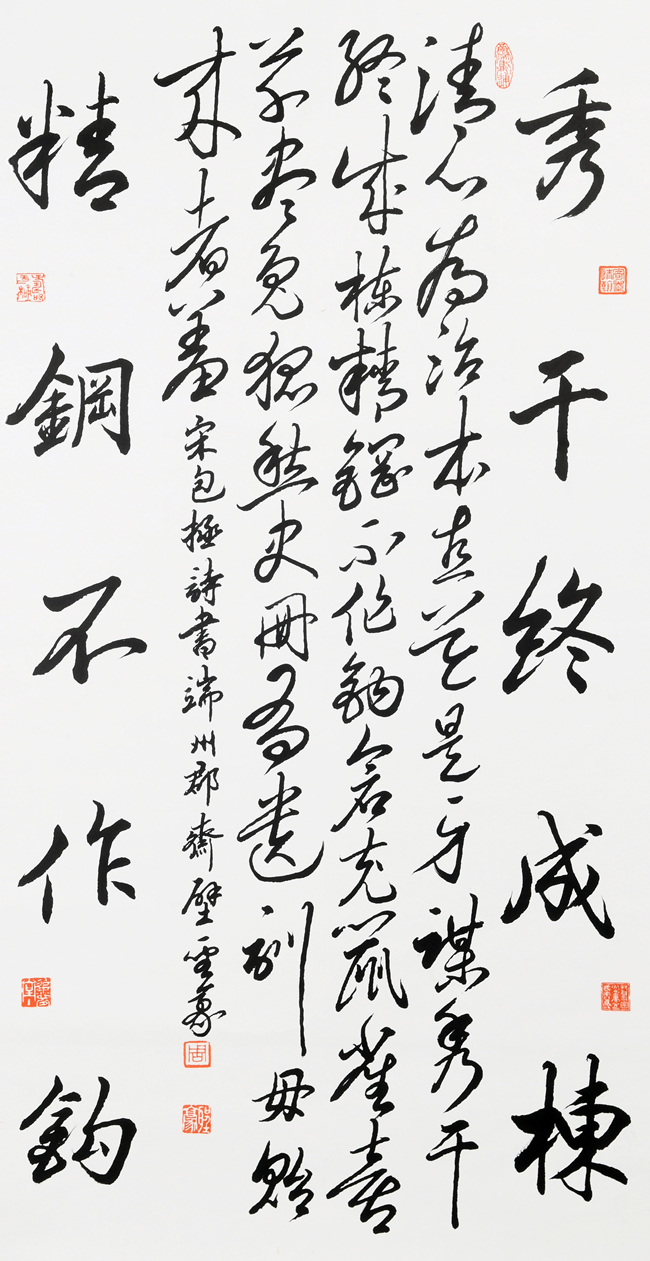 秀干終成棟
清心為治本直道是身謀秀干
終成棟精鋼不作鈎倉充鼠雀喜
草盡兔狐愁史冊有遺訓毋貽
來者羞宋包拯詩書端州郡齋壁
精鋼不作鈎